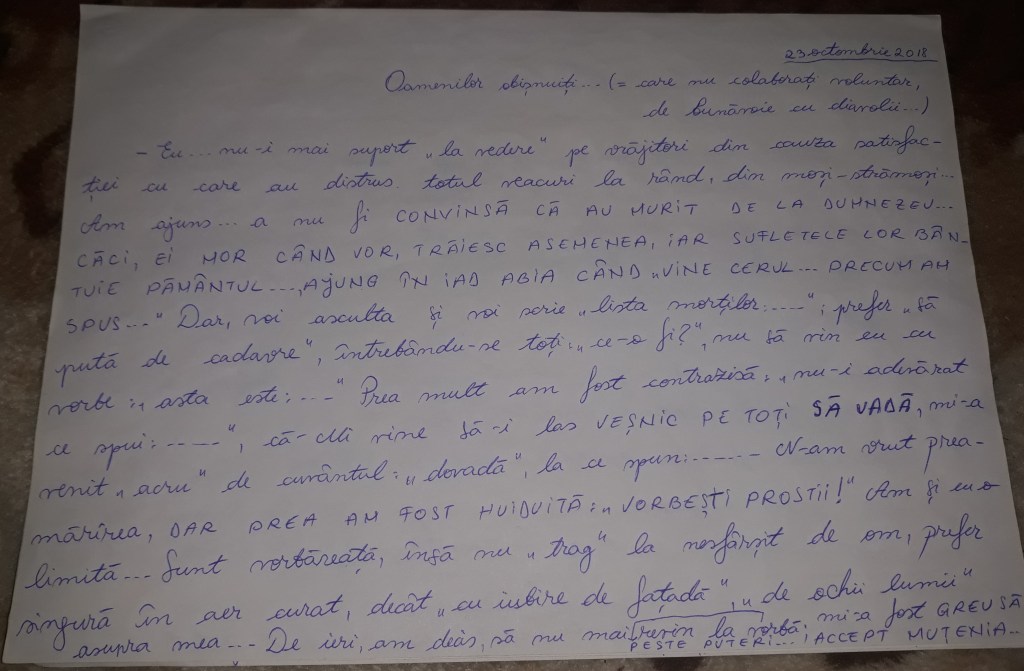 23 octombrie 2018
Oamenilor obișnuiți... (= care nu colaborați voluntar,
de bunăvoie cu diavolii...)
- Eu... nu-i mai suport „la vedere" pe vrăjitori din cauza satisfac-
ției cu care au distrus totul veacuri la rând, din moși-strămoși...
Am ajuns... a nu fi CONVINSĂ CĂ AU MURIT DE LA DUMNEZEU...
CĂCI, EI MOR CÂND VOR, TRĂIESC ASEMENEA, IAR SUFLETELE LOR BÂN-
TUIE PĂMÂNTUL..., AJUNG ÎN IAD ABIA CÂND „VINE CERUL... PRECUM AM
SPUS..." Dar, voi asculta și voi scrie „lista morților:....."; prefer „să
pută de cadavre", întrebându-se toți: „ce-o fi?", nu să vin eu cu
vorbe: „asta este:...." Prea mult am fost contrazisă: „nu-i adevărat
ce spui:.....", că-Mi vine să-i las VEȘNIC PE TOȚI SĂ VADĂ, mi-a
venit „acru" de cuvântul: „dovadă", la ce spun:...... N-am vrut prea-
mărirea, DAR PREA AM FOST HUIDUITĂ: „VORBEȘTI PROSTII!" Am și eu o
limită... Sunt vorbăreață, însă nu „trag" la nesfârșit de om, prefer
singură în aer curat, decât „cu iubire de fațadă", „de ochii lumii"
asupra mea... De ieri, am decis, să nu mai revin la vorbă; mi-a fost GREU SĂ
PESTE PUTERI...; ACCEPT MUȚENIA...